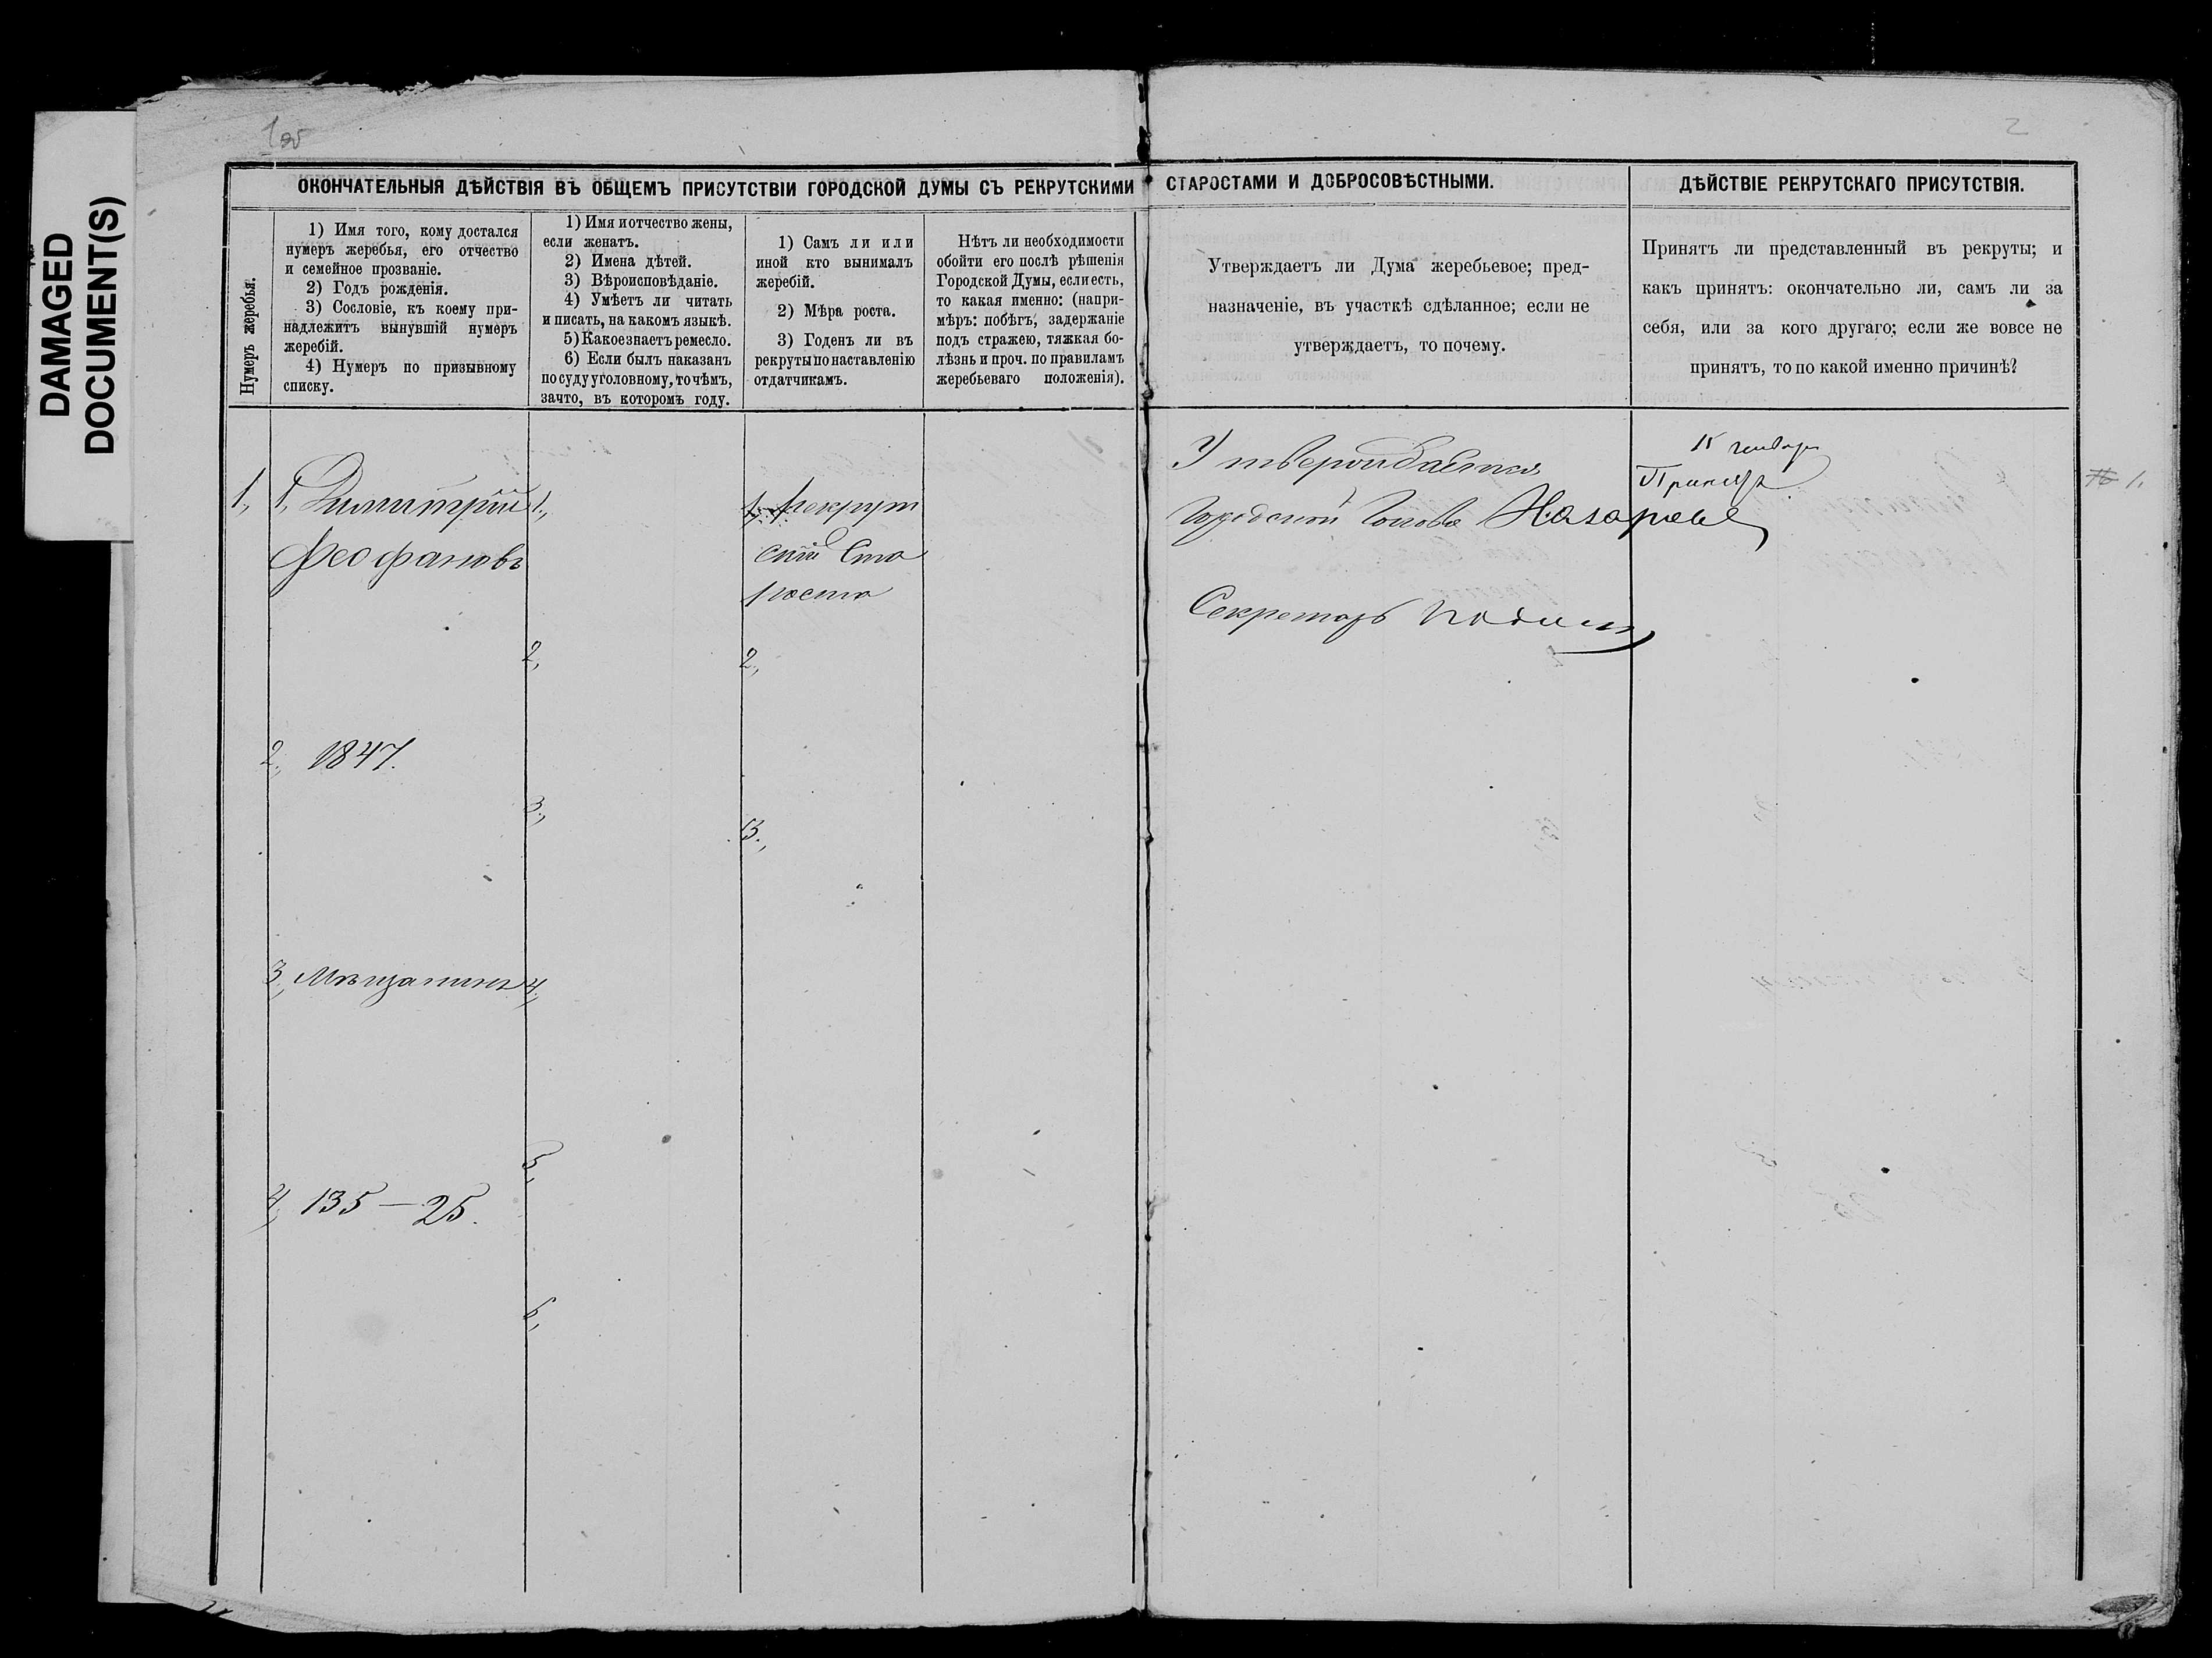 DAMAGED
DOCUMENT(S)
1об
2
ОКОНЧАТЕЛЬНЫЯ ДѢЙСТВІЯ ВЪ ОБЩЕМЪ ПРИСУТСТВІИ ГОРОДСКОЙ ДУМЫ СЪ РЕКРУТСКИМИ СТАРОСТАМИ И ДОБРОСОВѢСТНЫМИ.
ДѢЙСТВІЕ РЕКРУТСКАГО ПРИСУТСТВІЯ.
Нумеръ жеребья.
1) Имя того, кому достался
нумеръ жеребья, его отчество
и семейное прозваніе.
2) Годъ рожденія.
3) Сословіе, къ коему при-
надлежитъ вынувшій нумеръ
жеребій.
4) Нумеръ по призывному
списку.
1) Имя и отчество жены,
если женатъ.
2) Имена дѣтей.
3) Вѣроисповѣданіе.
4) Умѣетъ ли читать
и писать, на какомъ языкѣ.
5) Какое знаетъ ремесло.
6) Если былъ наказанъ
по суду уголовному, то чѣмъ,
за что, въ которомъ году.
1) Самъ ли или
иной кто вынималъ
жеребій.
2) Мѣра роста.
3) Годенъ ли въ
рекруты по наставленію
отдатчикамъ.
Нѣтъ ли необходимости
обойти его послѣ рѣшенія
Городской Думы, если есть,
то какая именно: (напри-
мѣръ: побѣгъ, задержаніе
подъ стражею, тяжкая бо-
лѣзнь и проч. по правиламъ
жеребьеваго положенія).
Утверждаетъ ли Дума жеребьевое; пред-
назначеніе, въ участкѣ сдѣланное; если не
утверждаетъ, то почему.
Принятъ ли представленный въ рекруты; и
какъ принятъ: окончательно ли, самъ ли за
себя, или за кого другаго; если же вовсе не
принятъ, то по какой именно причинѣ?
1, 1, Димитрій
Феофановъ
2, 1847.
3, Мѣщанинъ
4, 135 — 25.
1,
2,
3,
4,
5,
6,
1, рекрут
скій Ста
роста
2,
3,
Утверждается
Городской Голова Назаровъ
Секретарь
15 января
Принятъ
1.